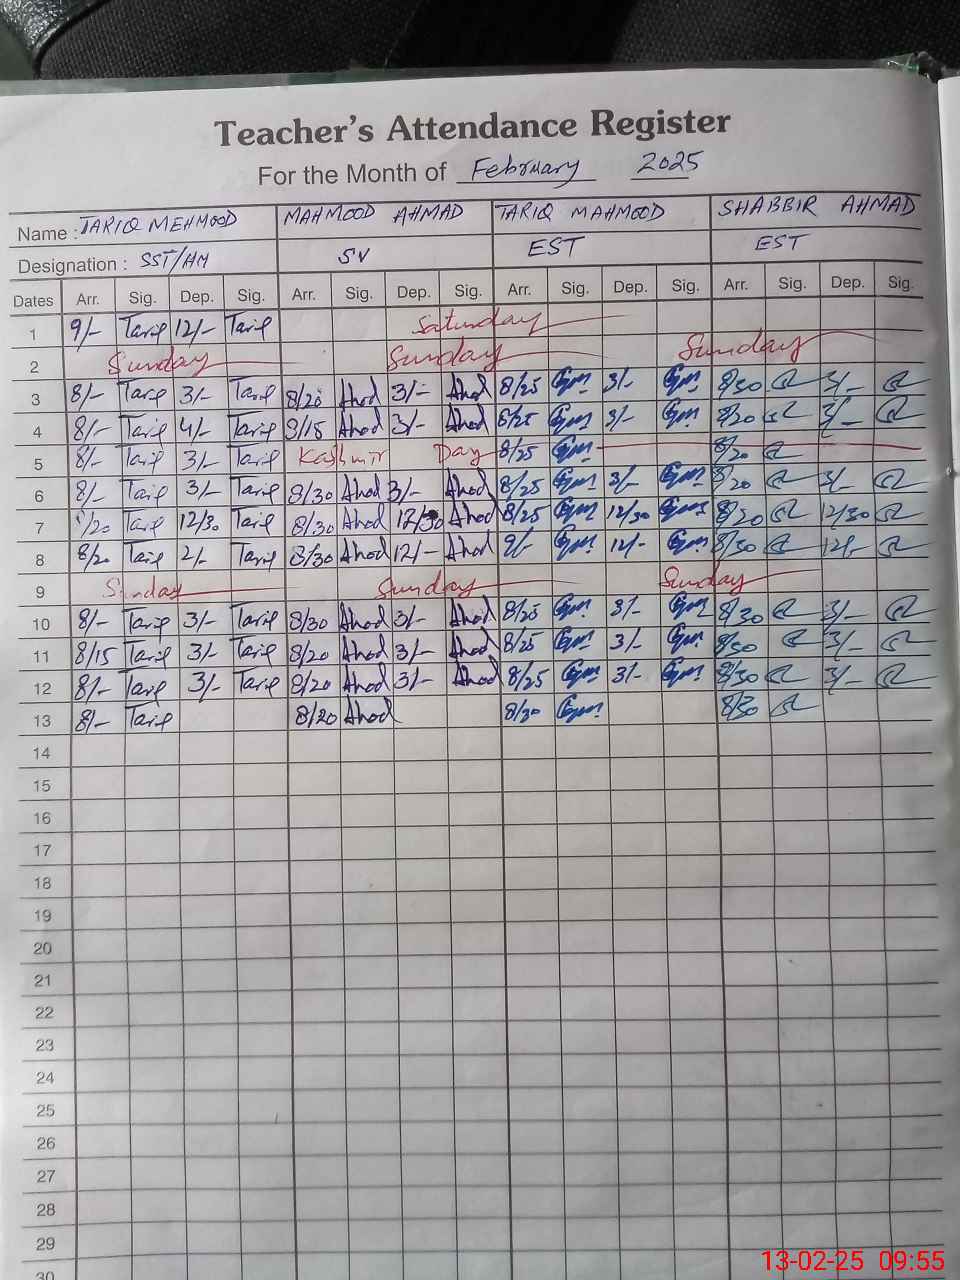 Teacher's Attendance Register
For the Month of February 2025
Name : TARIQ MEHMOOD MAHMOOD AHMAD TARIQ MAHMOOD SHABBIR AHMAD
Designation : SST/HM SV EST EST
Dates Arr. Sig. Dep. Sig. Arr. Sig. Dep. Sig. Arr. Sig. Dep. Sig. Arr. Sig. Dep. Sig.
1 9/- Tariq 12/- Tariq Saturday
2 Sunday Sunday Sunday
3 8/- Tariq 3/- Tariq 8/20 Ahod 3/- Ahod 8/25 3/- 8/30 3/-
4 8/- Tariq 4/- Tariq 8/15 Ahod 3/- Ahod 8/25 3/- 8/20 3/-
5 8/- Tariq 3/- Tariq Kashmir Day 8/25 8/20
6 8/- Tariq 3/- Tariq 8/30 Ahod 3/- Ahod 8/25 3/- 8/20 3/-
7 /20 Tariq 12/30 Tariq 8/30 Ahod 12/30 Ahod 8/25 12/30 8/20 12/30
8 8/20 Tariq 2/- Tariq 8/30 Ahod 12/- Ahod 9/- 12/- 8/30 12/-
9 Sunday Sunday Sunday
10 8/- Tariq 3/- Tariq 8/30 Ahod 3/- Ahod 8/25 3/- 8/30 3/-
11 8/15 Tariq 3/- Tariq 8/20 Ahod 3/- Ahod 8/25 3/- 8/30 3/-
12 8/- Tariq 3/- Tariq 8/20 Ahod 3/- Ahod 8/25 3/- 8/30 3/-
13 8/- Tariq 8/20 Ahod 8/30 8/30
14
15
16
17
18
19
20
21
22
23
24
25
26
27
28
29
30
13-02-25 09:55